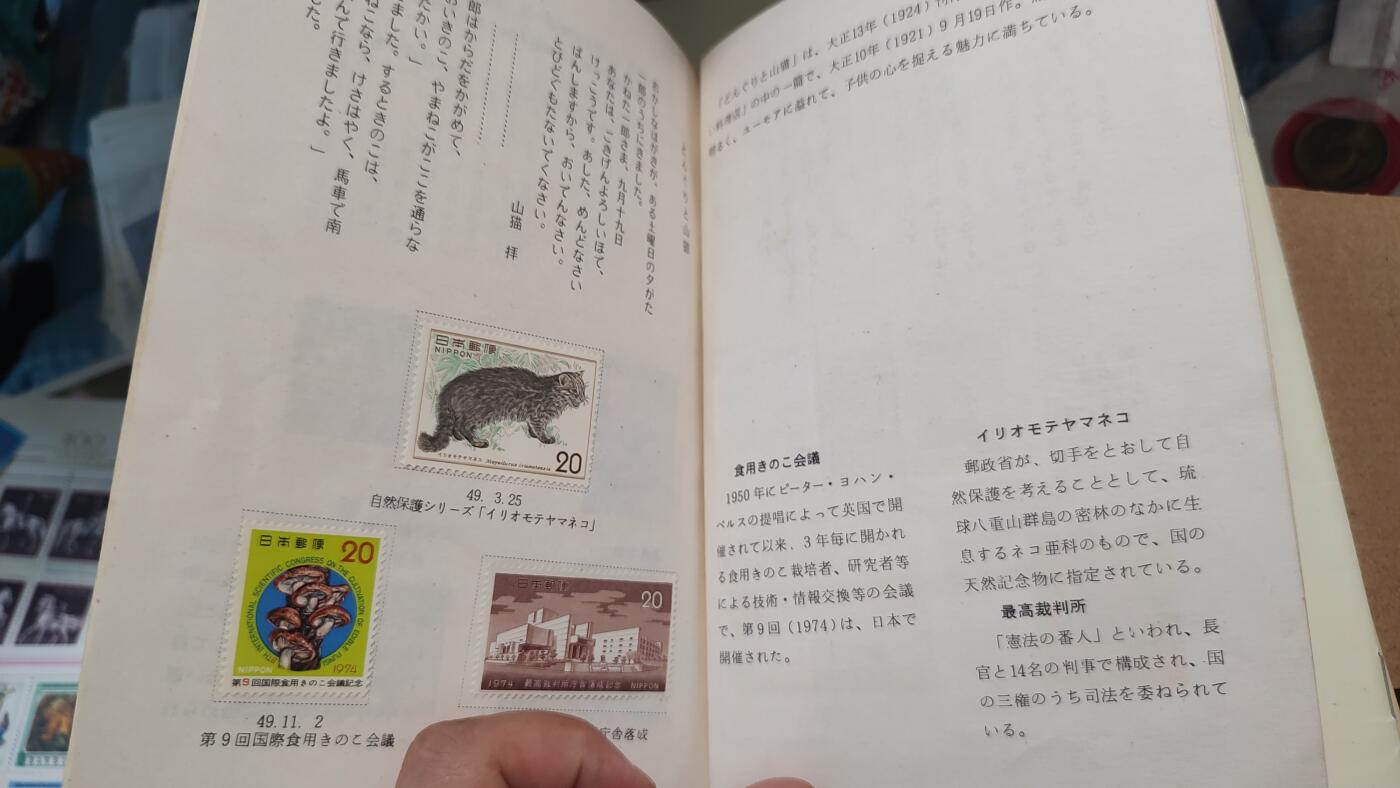 どんぐりと山猫
おかしなはがきが、ある土曜日の夕がた
一郎のうちにきました。
かねた一郎さま、九月十九日
あなたは、ごきげんよろしいほで、
けっこうです。あした、めんどなさい
ばんしますから、おいでんなさい。
とびどぐもたないでくなさい。
山猫 拝
郎はからだをかがめて、
おいきのこ、やまねこがここを通らな
たかい。」
ました。するときのこは、
ねこなら、けさはやく、馬車で南
んで行きましたよ。」
した。
日本郵便
NIPPON
イリオモテヤマネコ Mayailurus iriomotensis
20
49. 3.25
自然保護シリーズ「イリオモテヤマネコ」
日本郵便 20
9TH INTERNATIONAL SCIENTIFIC CONGRESS ON THE CULTIVATION OF EDIBLE FUNGI
NIPPON 1974
第9回国際食用きのこ会議記念
49.11. 2
第9回国際食用きのこ会議
日本郵便
20
1974 最高裁判所庁舎落成記念 NIPPON
庁舎落成
「どんぐりと山猫」は、大正13年(1924)
い料理店」の中の一篇で、大正10年(1921)9月19日作。
明るく、ユーモアに溢れて、子供の心を捉える魅力に満ちている。
食用きのこ会議
1950年にピーター・ヨハン・
ペルスの提唱によって英国で開
催されて以来、3年毎に開かれ
る食用きのこ栽培者、研究者等
による技術・情報交換等の会議
で、第9回(1974)は、日本で
開催された。
イリオモテヤマネコ
郵政省が、切手をとおして自
然保護を考えることとして、琉
球八重山群島の密林のなかに生
息するネコ亜科のもので、国の
天然記念物に指定されている。
最高裁判所
「憲法の番人」といわれ、長
官と14名の判事で構成され、国
の三権のうち司法を委ねられて
いる。